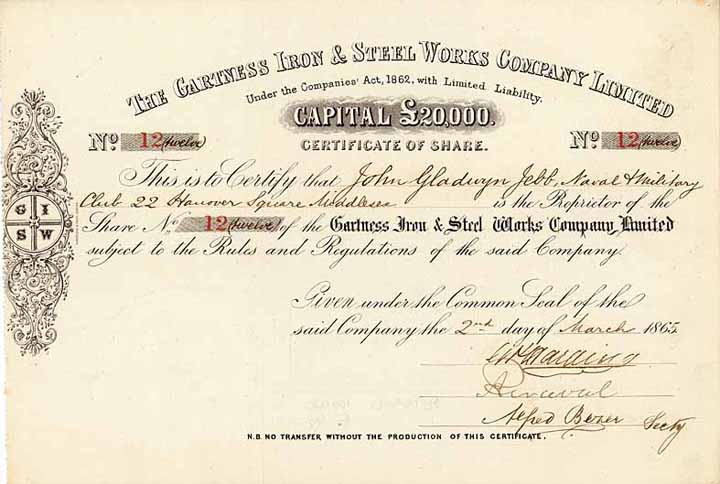 THE GARTNESS IRON & STEEL WORKS COMPANY LIMITED
Under the Companies' Act, 1862, with Limited Liability.
CAPITAL £20,000.
No. 12 (twelve) No. 12 (twelve)
CERTIFICATE OF SHARE.
This is to Certify that John Gladwyn Jebb, Naval & Military
Club 22 Hanover Square Middlesex is the Proprietor of the
Share No. 12 (twelve) of the Gartness Iron & Steel Works Company, Limited
subject to the Rules and Regulations of the said Company.
G I
S W
Given under the Common Seal of the
said Company the 2nd day of March 1865
Alfred Secty
N.B. NO TRANSFER WITHOUT THE PRODUCTION OF THIS CERTIFICATE.